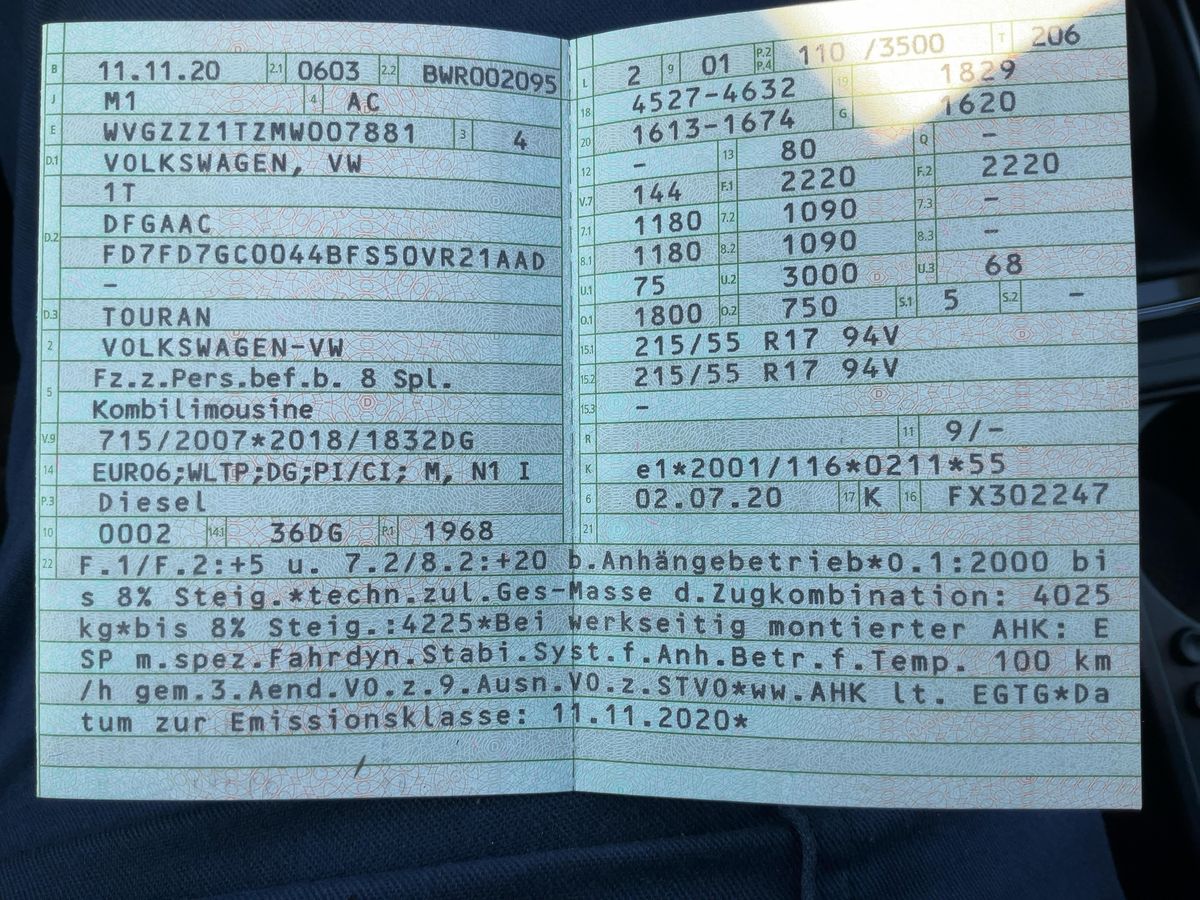 B 11.11.20 2.1 0603 2.2 BWR002095
J M1 4 AC
E WVGZZZ1TZMW007881 3 4
D.1 VOLKSWAGEN, VW
1T
D.2 DFGAAC
FD7FD7GC0044BFS50VR21AAD
–
D.3 TOURAN
2 VOLKSWAGEN-VW
5 Fz.z.Pers.bef.b. 8 Spl.
Kombilimousine
V.9 715/2007*2018/1832DG
14 EURO6;WLTP;DG;PI/CI; M, N1 I
P.3 Diesel
10 0002 14.1 36DG P.1 1968
L 2 9 01 P.2 P.4 110 /3500 T 206
18 4527-4632 19 1829
20 1613-1674 G 1620
12 – 13 80 Q –
V.7 144 F.1 2220 F.2 2220
7.1 1180 7.2 1090 7.3 –
8.1 1180 8.2 1090 8.3 –
U.1 75 U.2 3000 U.3 68
O.1 1800 O.2 750 S.1 5 S.2 –
15.1 215/55 R17 94V
15.2 215/55 R17 94V
15.3 –
R 11 9/–
K e1*2001/116*0211*55
6 02.07.20 17 K 16 FX302247
21
22 F.1/F.2:+5 u. 7.2/8.2:+20 b.Anhängebetrieb*0.1:2000 bi
s 8% Steig.*techn.zul.Ges-Masse d.Zugkombination: 4025
kg*bis 8% Steig.:4225*Bei werkseitig montierter AHK: E
SP m.spez.Fahrdyn.Stabi.Syst.f.Anh.Betr.f.Temp. 100 km
/h gem.3.Aend.VO.z.9.Ausn.VO.z.STVO*ww.AHK lt. EGTG*Da
tum zur Emissionsklasse: 11.11.2020*